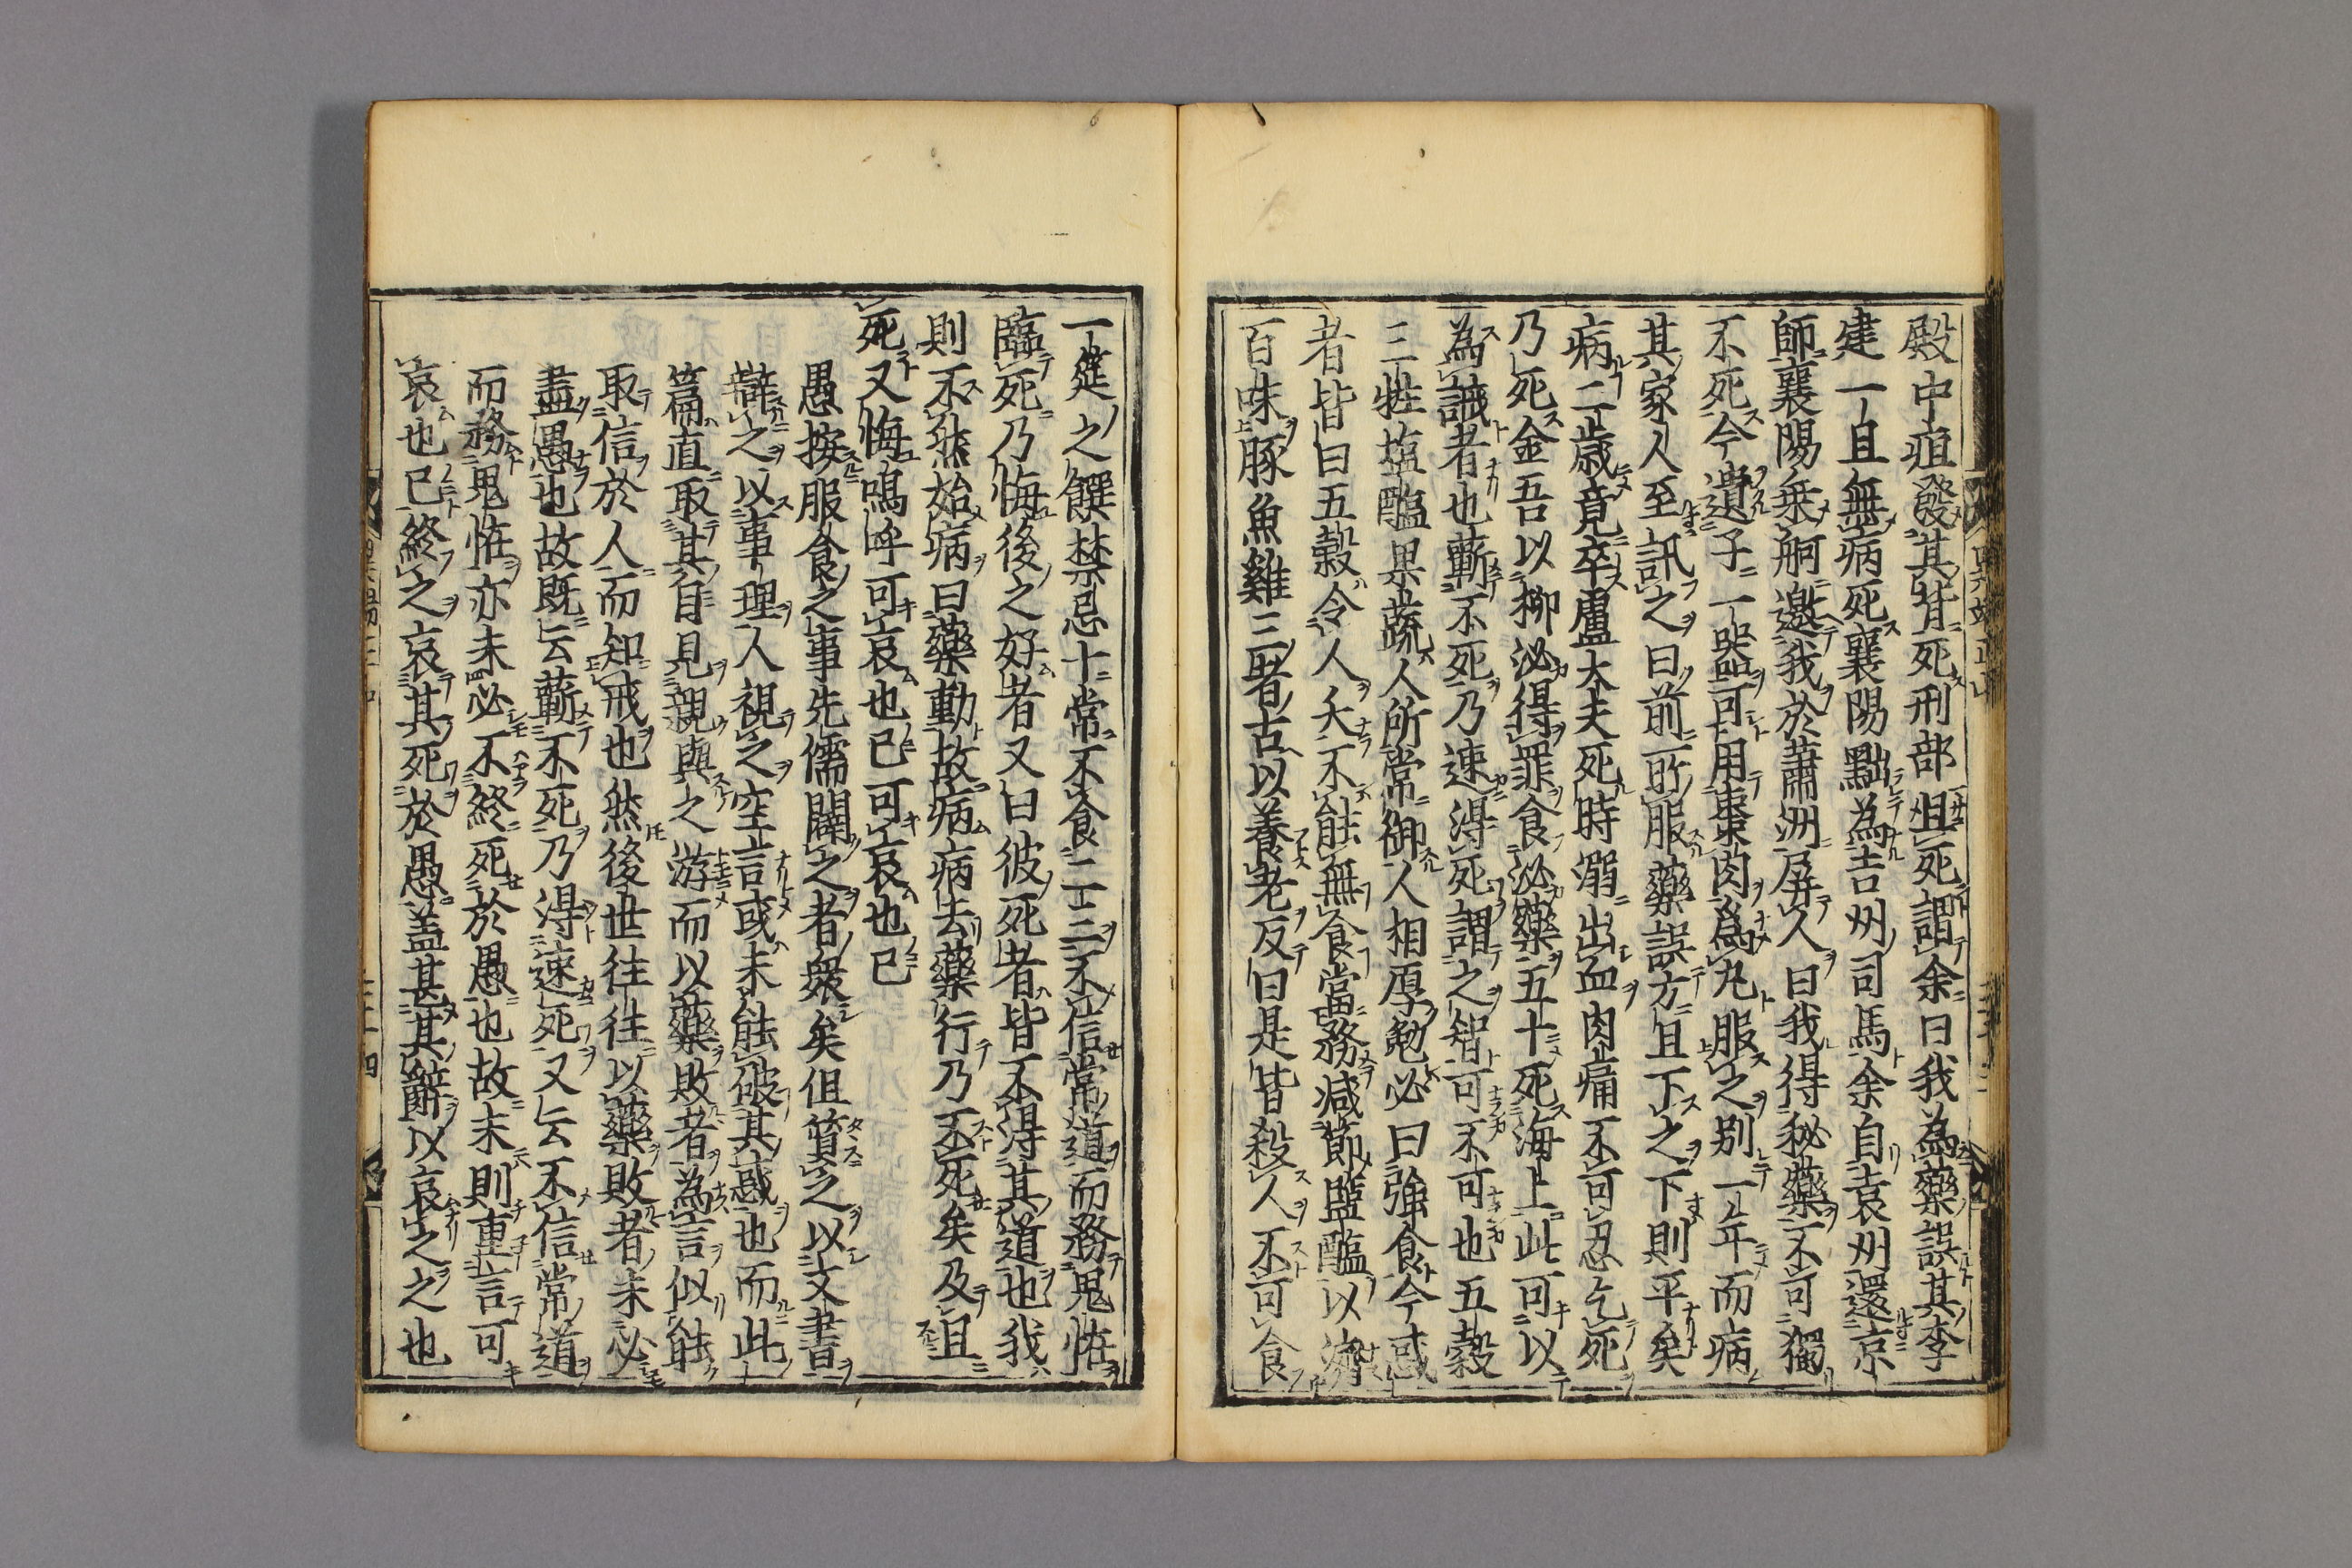 殿中疽發其背死刑部且死謂余曰我為藥誤其李
建一旦無病死襄陽黜為吉州司馬余自袁州還京
師襄陽乗舸邀我於蕭洲屏人曰我得秘藥不可獨
不死今遺子一器可用棗肉為丸服之別一年而病
其家人至訊之曰前所服藥誤方且下之下則平矣
病二歳竟卒盧大夫死時溺出血肉痛不可忍乞死
乃死金吾以柳泌得罪食泌藥五十死海上此可以
為誡者也蘄不死乃速得死謂之智可不可也五穀
三牲塩醢果蔬人所常御人相厚勉必曰強食今惑
者皆曰五穀令人夭不能無食當務減節塩醢以濟
百味豚魚雞三者古以養老反曰是皆殺人不可食
一筵之饌禁忌十常不食二三不信常道而務鬼恠
臨死乃悔後之好者又曰彼死者皆不得其道也我
則不然始病曰藥動故病病去藥行乃不死矣及且
死又悔嗚呼可哀也已可哀也已
愚按服食之事先儒闢之者衆矣但箕之以文書
辯之以事理人視之空言或未能破其惑也而此
篇直取其自見親與之游而以藥敗者為言似能
取信於人而知戒也然後世往往以藥敗者未必
盡愚也故既云蘄不死乃得速死又云不信常道
而務鬼恠亦未必不終死於愚也故末則重言可
哀也已終之哀其死於愚盖甚其辭以哀之之也